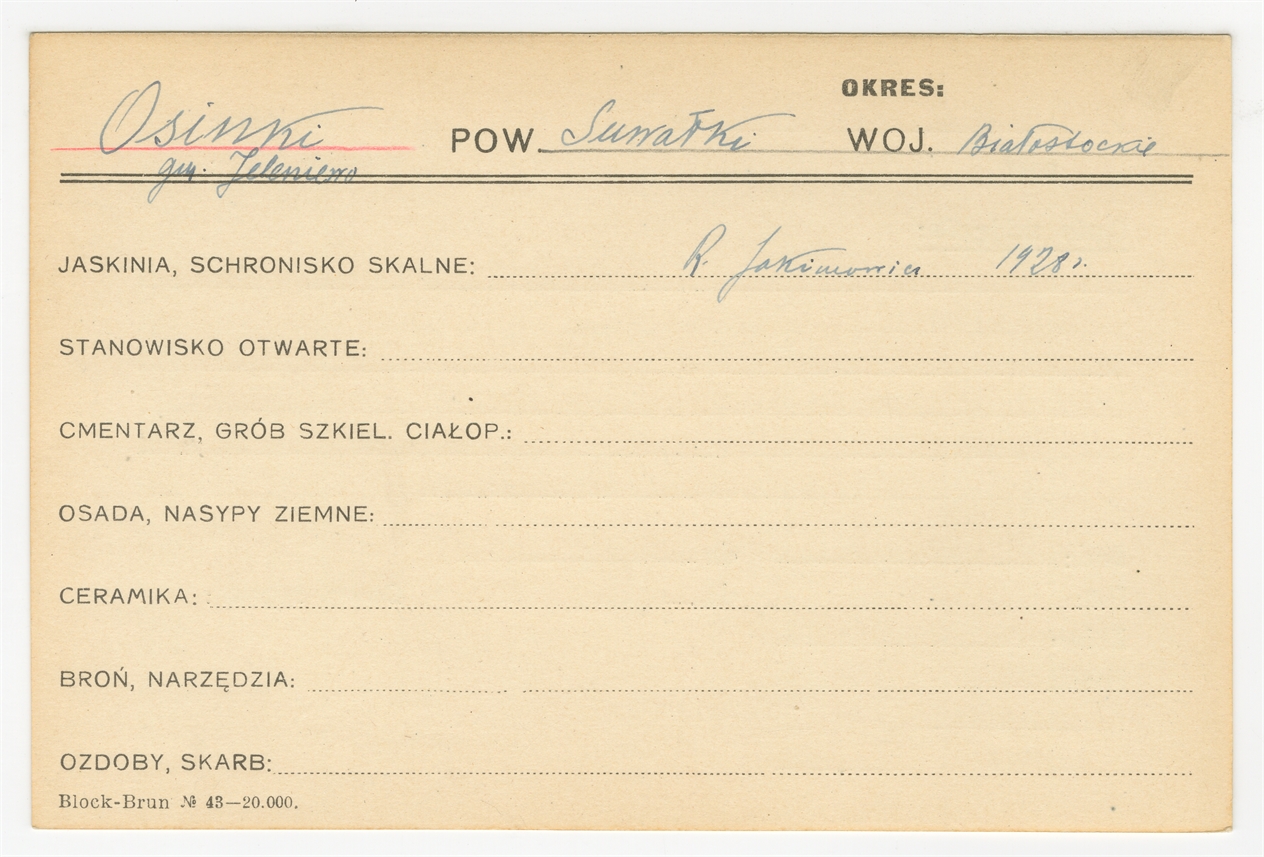 OKRES:
Osinki POW. Suwałki WOJ. Białostockie
gm. Jeleniewo
JASKINIA, SCHRONISKO SKALNE: R. Jakimowicz 1928 r.
STANOWISKO OTWARTE:
CMENTARZ, GRÓB SZKIEL. CIAŁOP.:
OSADA, NASYPY ZIEMNE:
CERAMIKA:
BROŃ, NARZĘDZIA:
OZDOBY, SKARB:
Block-Brun № 43—20.000.